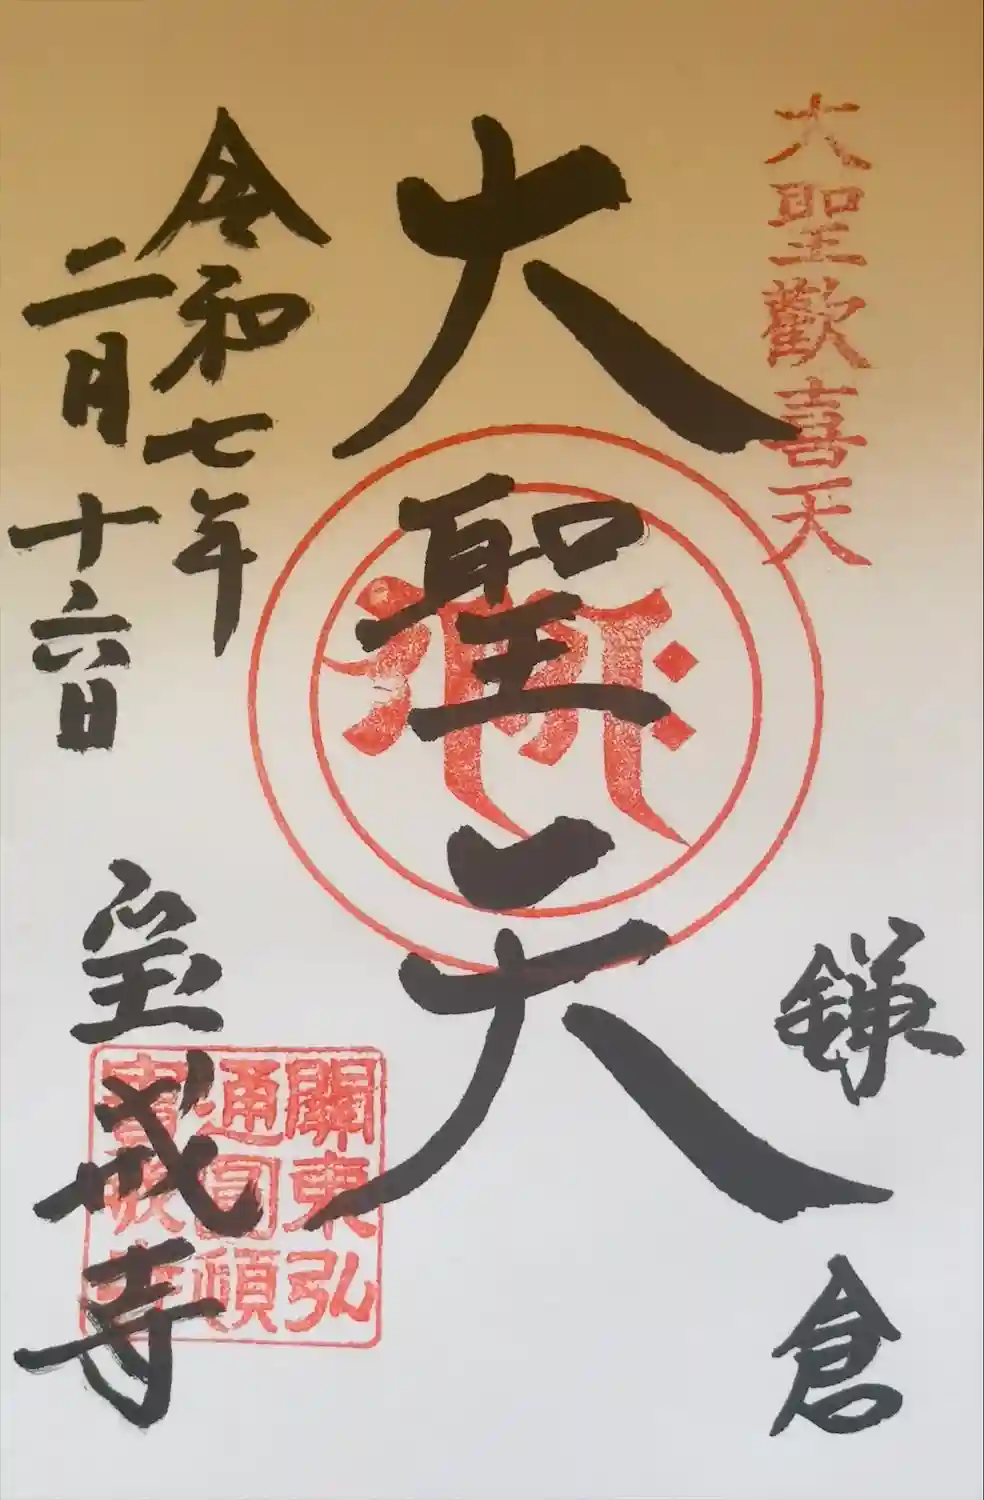 大聖歡喜天
鎌倉
大聖天
令和七年
二月十六日
宝戒寺
關東弘
通圓頓
寶戒寺